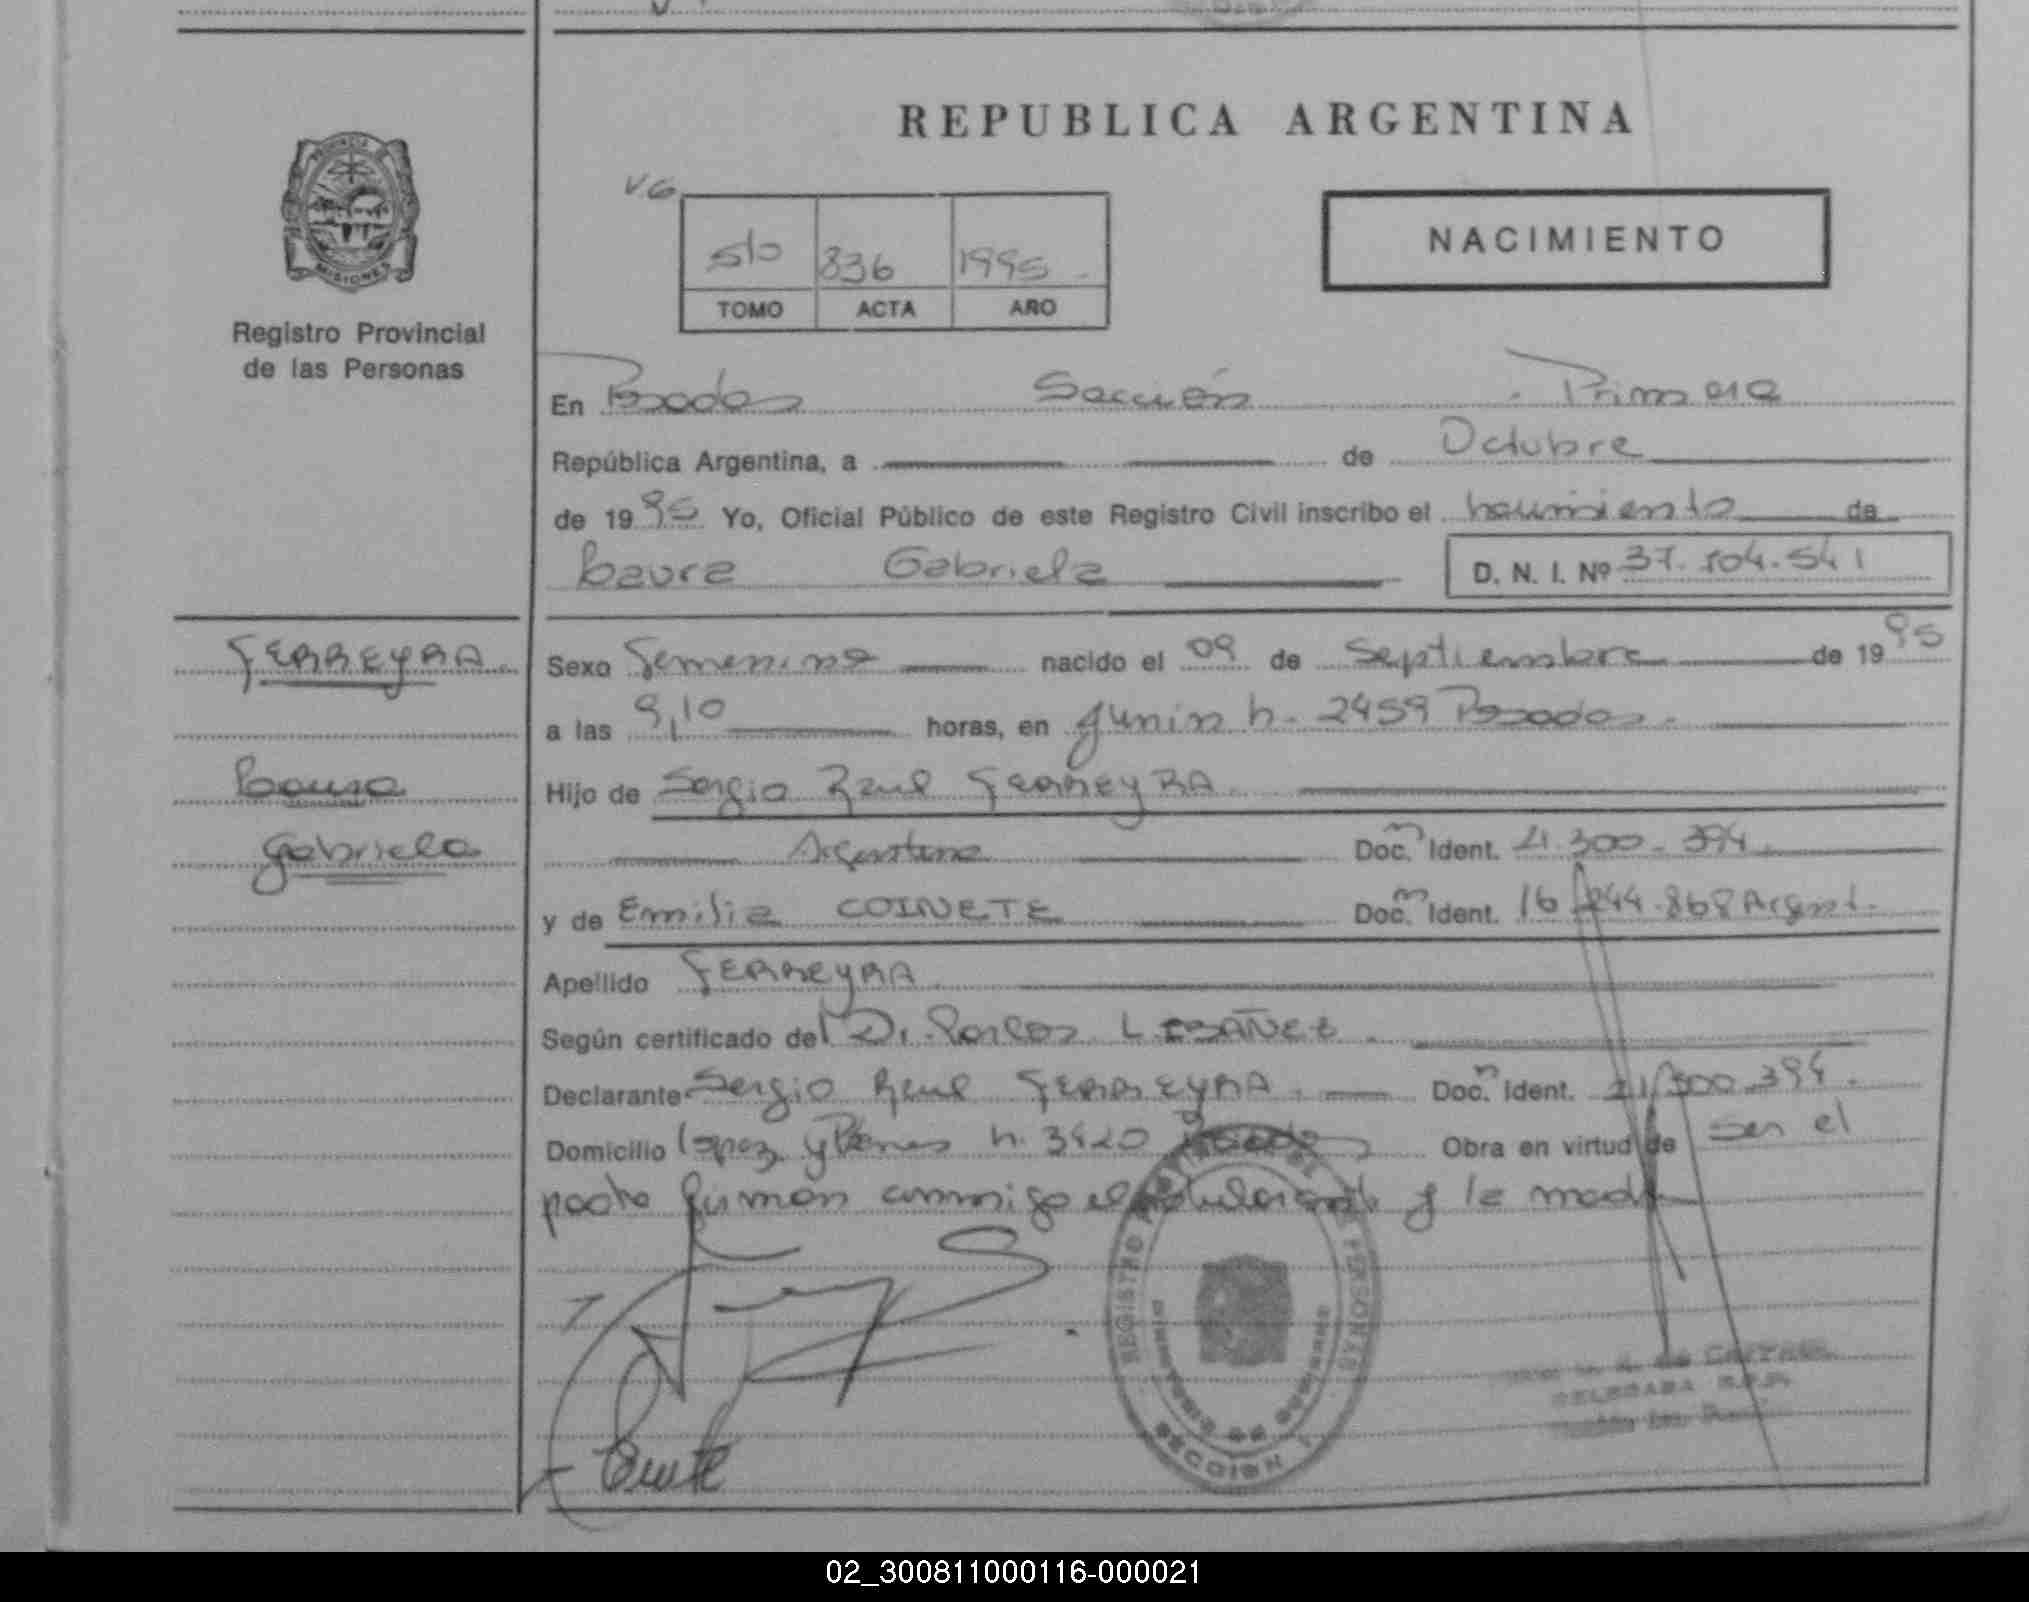 REPUBLICA ARGENTINA
PROVINCIA DE MISIONES
Registro Provincial
de las Personas
V6
s/o 836 1995
TOMO ACTA AÑO
NACIMIENTO
En Posadas Sección Primera
República Argentina, a de Octubre
de 1995 Yo, Oficial Público de este Registro Civil inscribo el nacimiento de
Laura Gabriela D. N. I. Nº 37.104.541
FERREYRA.
Sexo Femenino nacido el 09 de Septiembre de 1995
a las 9,10 horas, en Junin n. 2459 Posadas.
Laura
Hijo de Sergio Raul FERREYRA.
Gabriela
Argentino Doc. Ident. 21.300.394.
y de Emilia COINETE Doc. Ident. 16.244.868 Argent.
Apellido FERREYRA
Según certificado del Dr. Carlos
Declarante Sergio Raul FERREYRA. Doc. Ident. 21.300.394.
Domicilio Lopez y Planes n. 3420 Posadas Obra en virtud de ser el
padre firman conmigo el declarante y la madre
REGISTRO PROVINCIAL DE LAS PERSONAS
MINISTERIO DE GOBIERNO
SECCION 1
DELEGADA R.P.P.
02_300811000116-000021